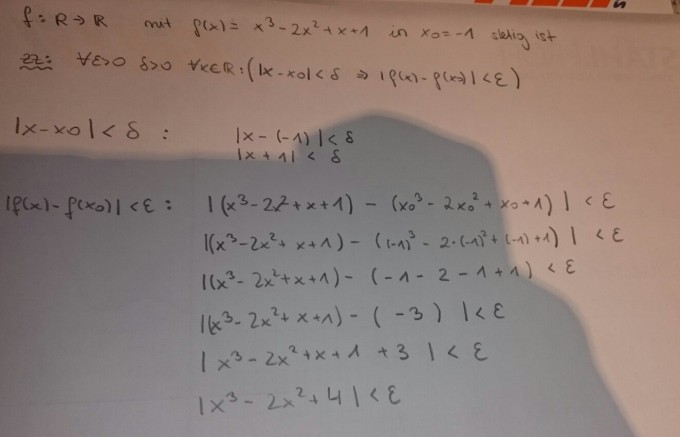 f: R → R mit f(x) = x³ - 2x² + x + 1 in x₀ = -1 stetig ist
zz: ∀ε>0 δ>0 ∀x∈R: (|x - x₀| < δ ⇒ |f(x) - f(x₀)| < ε)
|x - x₀| < δ : |x - (-1)| < δ
|x + 1| < δ
|f(x) - f(x₀)| < ε : |(x³ - 2x² + x + 1) - (x₀³ - 2x₀² + x₀ + 1)| < ε
|(x³ - 2x² + x + 1) - ((-1)³ - 2·(-1)² + (-1) + 1)| < ε
|(x³ - 2x² + x + 1) - (-1 - 2 - 1 + 1) < ε
|(x³ - 2x² + x + 1) - (-3)| < ε
|x³ - 2x² + x + 1 + 3| < ε
|x³ - 2x² + 4| < ε